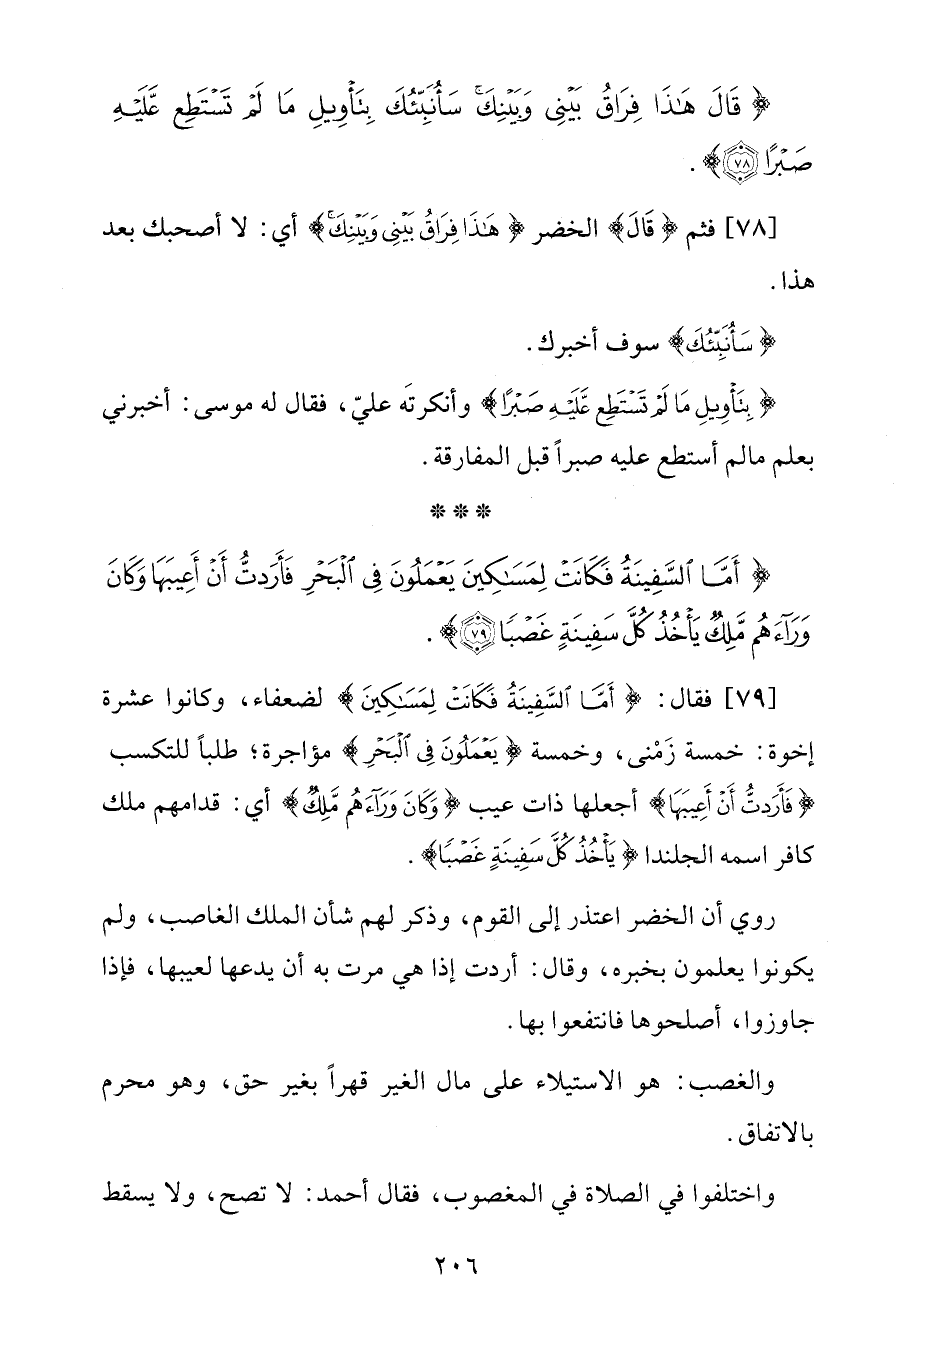 ﴿ قَالَ هَٰذَا فِرَاقُ بَيْنِى وَبَيْنِكَ ۚ سَأُنَبِّئُكَ بِتَأْوِيلِ مَا لَمْ تَسْتَطِع عَّلَيْهِ
صَبْرًا ﴿٧٨﴾ ﴾ .
[٧٨] فثم ﴿ قَالَ ﴾ الخضر ﴿ هَٰذَا فِرَاقُ بَيْنِى وَبَيْنِكَ ۚ ﴾ أي: لا أصحبك بعد
هذا .
﴿ سَأُنَبِّئُكَ ﴾ سوف أخبرك .
﴿ بِتَأْوِيلِ مَا لَمْ تَسْتَطِع عَّلَيْهِ صَبْرًا ﴾ وأنكرتَه عليّ، فقال له موسى: أخبرني
بعلم مالم أستطع عليه صبراً قبل المفارقة .
* * *
﴿ أَمَّا ٱلسَّفِينَةُ فَكَانَتْ لِمَسَٰكِينَ يَعْمَلُونَ فِى ٱلْبَحْرِ فَأَرَدتُّ أَنْ أَعِيبَهَا وَكَانَ
وَرَآءَهُم مَّلِكٌ يَأْخُذُ كُلَّ سَفِينَةٍ غَصْبًا ﴿٧٩﴾ ﴾ .
[٧٩] فقال: ﴿ أَمَّا ٱلسَّفِينَةُ فَكَانَتْ لِمَسَٰكِينَ ﴾ لضعفاء، وكانوا عشرة
إخوة: خمسة زَمْنى، وخمسة ﴿ يَعْمَلُونَ فِى ٱلْبَحْرِ ﴾ مؤاجرة؛ طلباً للتكسب
﴿ فَأَرَدتُّ أَنْ أَعِيبَهَا ﴾ أجعلها ذات عيب ﴿ وَكَانَ وَرَآءَهُم مَّلِكٌ ﴾ أي: قدامهم ملك
كافر اسمه الجلندا ﴿ يَأْخُذُ كُلَّ سَفِينَةٍ غَصْبًا ﴾ .
روي أن الخضر اعتذر إلى القوم، وذكر لهم شأن الملك الغاصب، ولم
يكونوا يعلمون بخبره، وقال: أردت إذا هي مرت به أن يدعها لعيبها، فإذا
جاوزوا، أصلحوها فانتفعوا بها .
والغصب: هو الاستيلاء على مال الغير قهراً بغير حق، وهو محرم
بالاتفاق .
واختلفوا في الصلاة في المغصوب، فقال أحمد: لا تصح، ولا يسقط
٢٠٦